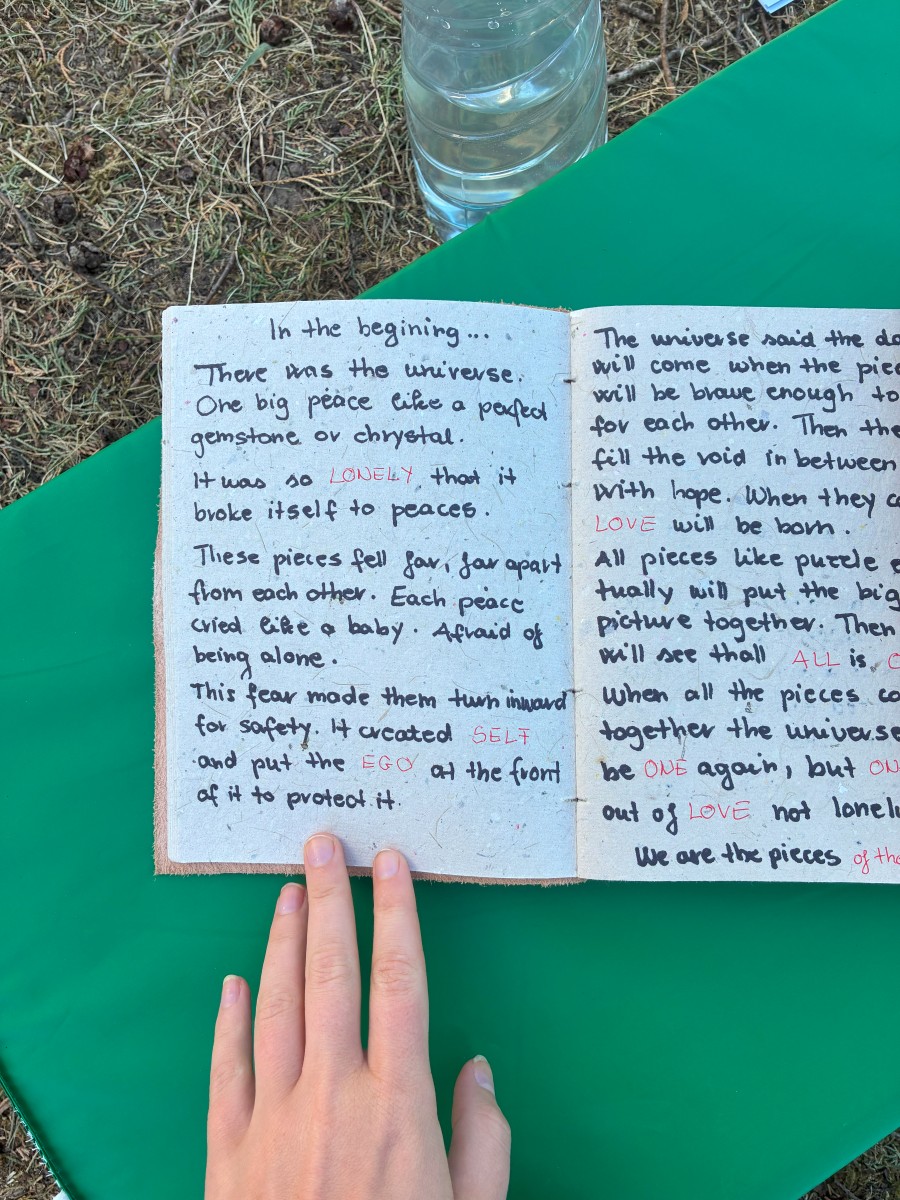 In the begining...
There was the universe.
One big peace like a perfect
gemstone or chrystal.
It was so LONELY that it
broke itself to peaces.
These pieces fell far, far apart
from each other. Each peace
cried like a baby. Afraid of
being alone.
This fear made them turn inward
for safety. It created SELF
and put the EGO at the front
of it to protect it.
The universe said the
will come when the
will be brave enough to
for each other. Then
fill the void in between
with hope. When they
LOVE will be born.
All pieces like puzzle
tually will put the big
picture together. Then
will see thall ALL is
When all the pieces
together the universe
be ONE again, but
out of LOVE not
We are the pieces of